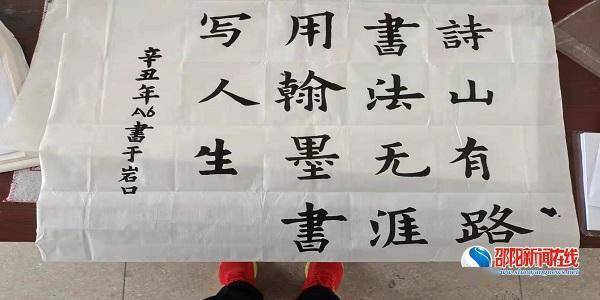 詩山有路
書法无涯
用翰墨書
写人生
辛丑年86書于岩口
邵阳新闻在线
www.shaoyangnews.net